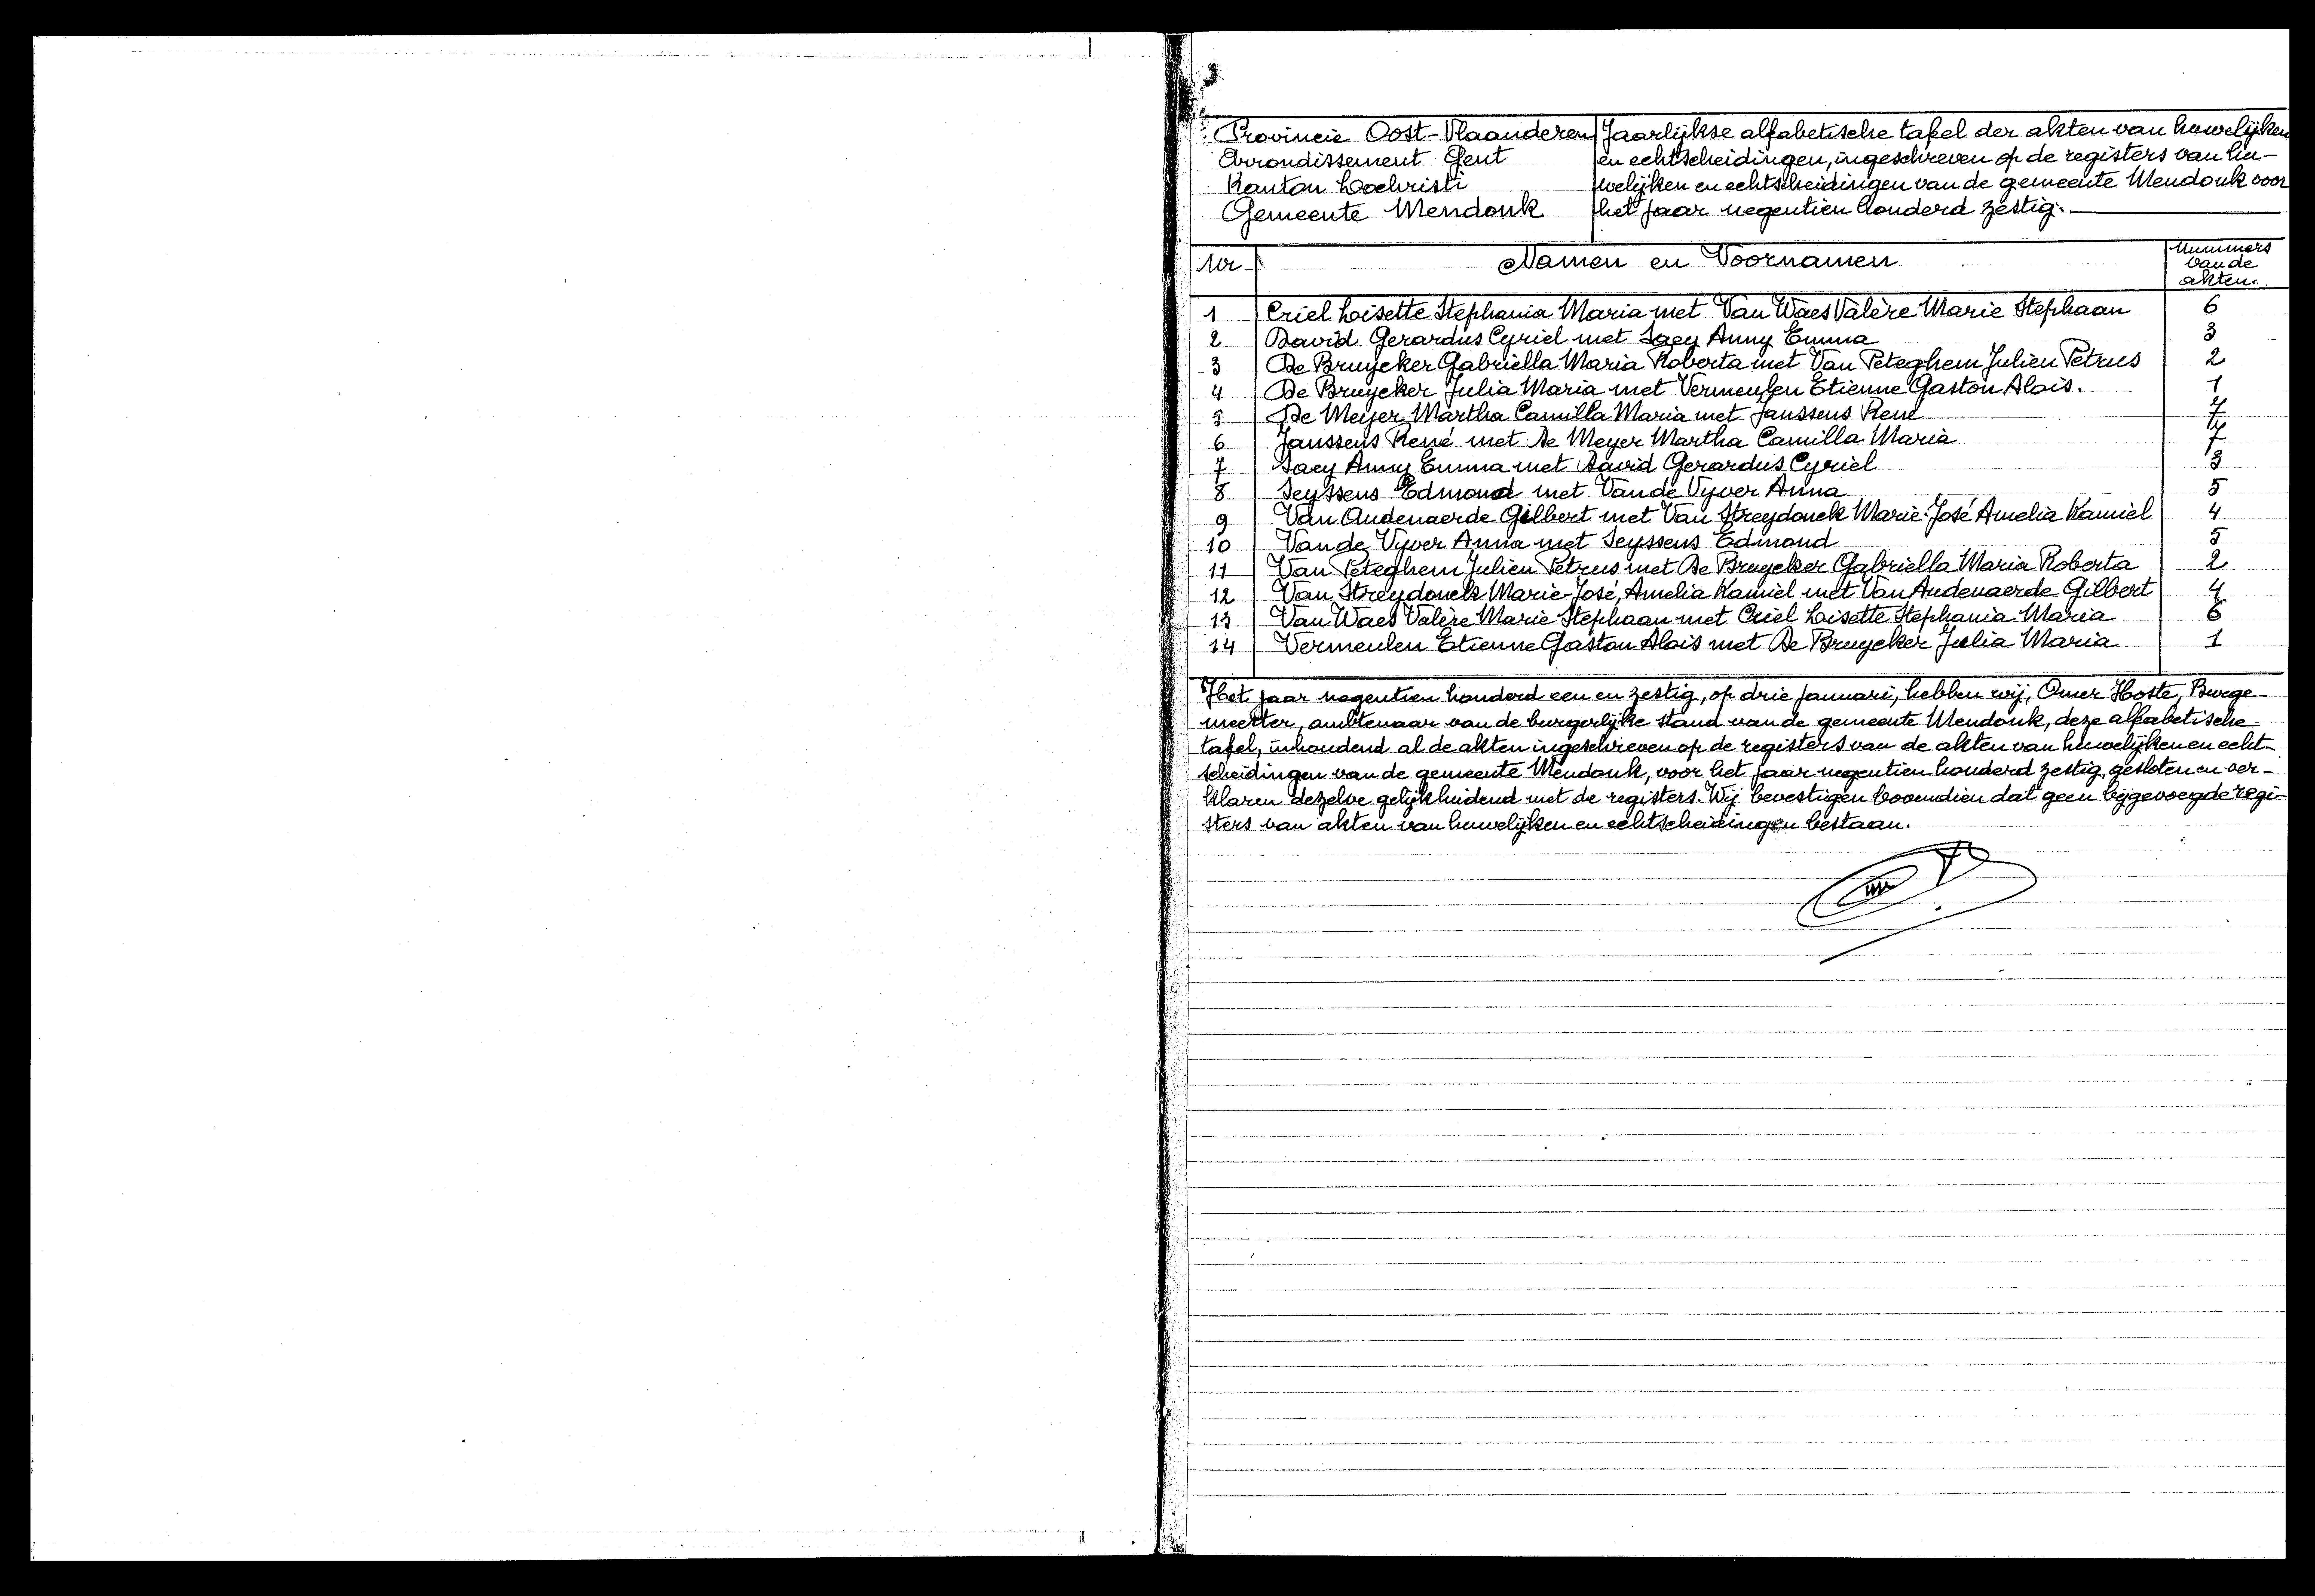 Provincie Oost-Vlaanderen
Arrondissement Gent
Kanton Lochristi
Gemeente Mendonk
Jaarlijkse alfabetische tafel der akten van huwelijken
en echtscheidingen, ingeschreven op de registers van hu-
welijken en echtscheidingen van de gemeente Mendonk voor
het jaar negentien honderd zestig.
Nr Namen en Voornamen Nummers van de akten.
1 Criel Loisette Stephania Maria met Van Waes Valère Marie Stephaan 6
2 David Gerardus Cyriel met Saey Anny Emma 3
3 De Bruycker Gabriella Maria Roberta met Van Peteghem Julien Petrus 2
4 De Bruycker Julia Maria met Vermeulen Etienne Gaston Alois. 1
5 De Meyer Martha Camilla Maria met Janssens René 7
6 Janssens René met De Meyer Martha Camilla Maria 7
7 Saey Anny Emma met David Gerardus Cyriel 3
8 Seyssens Edmond met Van de Vyver Anna 5
9 Van Audenaerde Gilbert met Van Streydonck Marie-José Amelia Kamiel 4
10 Van de Vyver Anna met Seyssens Edmond 5
11 Van Peteghem Julien Petrus met De Bruycker Gabriella Maria Roberta 2
12 Van Streydonck Marie-José, Amelia Kamiel met Van Audenaerde Gilbert 4
13 Van Waes Valère Marie Stephaan met Criel Loisette Stephania Maria 6
14 Vermeulen Etienne Gaston Alois met De Bruycker Julia Maria 1
Het jaar negentien honderd een en zestig, op drie januari, hebben wij, Omer Hoste, Burge-
meester, ambtenaar van de burgerlijke stand van de gemeente Mendonk, deze alfabetische
tafel, inhoudend al de akten ingeschreven op de registers van de akten van huwelijken en echt-
scheidingen van de gemeente Mendonk, voor het jaar negentien honderd zestig, gesloten en ver-
klaren dezelve gelijkluidend met de registers. Wij bevestigen bovendien dat geen bijgevoegde regi-
sters van akten van huwelijken en echtscheidingen bestaan.